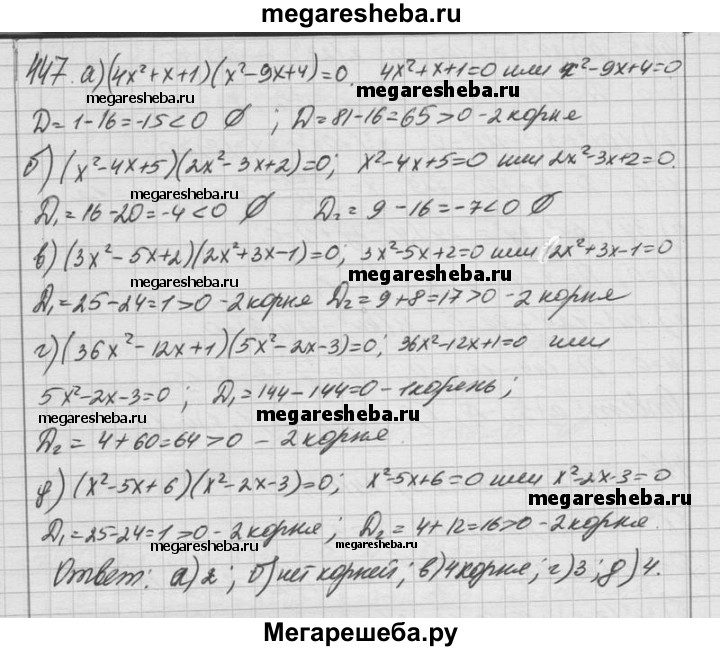 megaresheba.ru
447. а) (4x²+x+1)(x²-9x+4)=0. 4x²+x+1=0 или x²-9x+4=0
megaresheba.ru megaresheba.ru
D=1-16=-15<0 ∅ ; D=81-16=65>0 - 2 корня
б) (x²-4x+5)(2x²-3x+2)=0; x²-4x+5=0 или 2x²-3x+2=0.
megaresheba.ru megaresheba.ru
D₁=16-20=-4<0 ∅ D₂=9-16=-7<0 ∅
в) (3x²-5x+2)(2x²+3x-1)=0; 3x²-5x+2=0 или 2x²+3x-1=0
megaresheba.ru megaresheba.ru
D₁=25-24=1>0 - 2 корня D₂=9+8=17>0 - 2 корня
г) (36x²-12x+1)(5x²-2x-3)=0; 36x²-12x+1=0 или
5x²-2x-3=0 ; D₁=144-144=0 - 1 корень;
megaresheba.ru megaresheba.ru
D₂=4+60=64>0 - 2 корня.
д) (x²-5x+6)(x²-2x-3)=0; x²-5x+6=0 или x²-2x-3=0
megaresheba.ru
D₁=25-24=1>0 - 2 корня; D₂=4+12=16>0 - 2 корня.
megaresheba.ru megaresheba.ru
Ответ: а) 2; б) нет корней; в) 4 корня; г) 3; д) 4.
Мегарешеба.ру